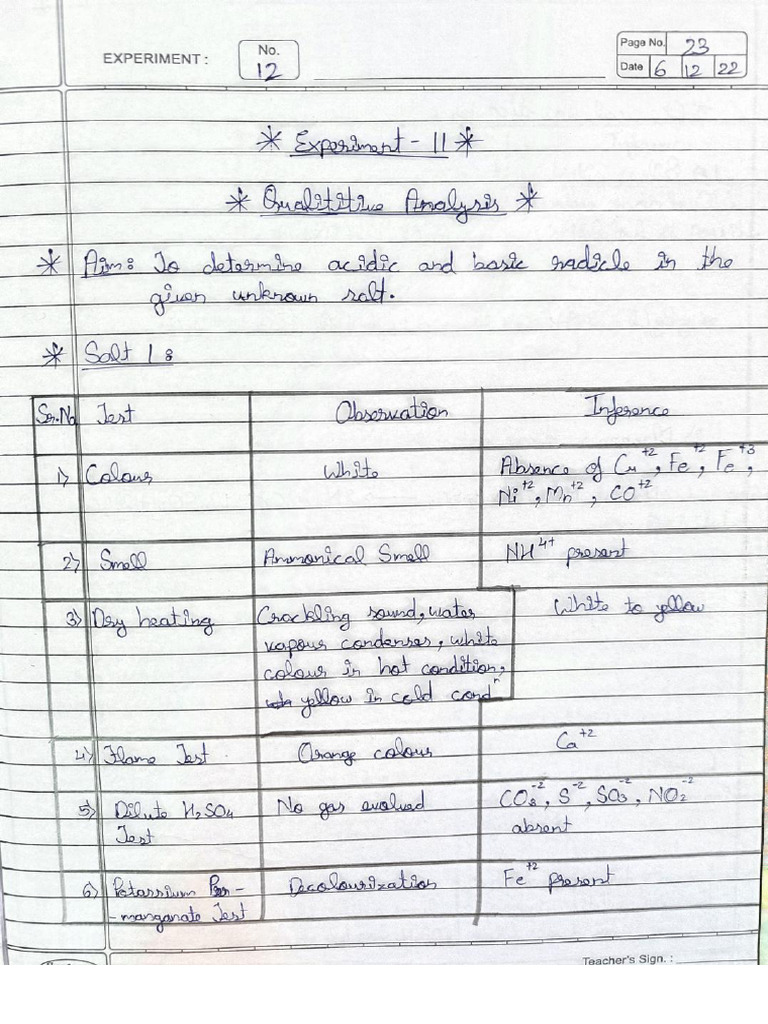 EXPERIMENT :
No.
12
Page No. 23
Date 6 12 22
* Experiment - 11 *
* Qualititive Analysis *
* Aim: To determine acidic and basic radicle in the
given unknown salt.
* Salt 1 :
Sr.No Test Observation Inference
1) Colour White Absence of Cu+2, Fe+2, Fe+3,
Ni+2, Mn+2, CO+2
2) Smell Ammonical Smell NH4+ present
3) Dry heating Crackling sound, water White to yellow
vapour condenses, white
colour in hot condition,
yellow in cold condn
4) Flame Test Orange colour Ca+2
5) Dilute H2SO4 No gas evolved CO3-2, S-2, SO3-2, NO2-2
Test absent
6) Potassium Per- Decolourization Fe+2 present
-manganate Test
Teacher's Sign. :